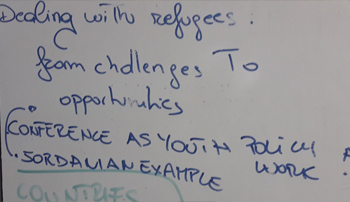 Dealing with refugees.
from chdlenges To
opportunities
CONFERENCE AS YOUTH POLICY
WORK
. JORDANIAN EXAMPLE
COUNTRIES